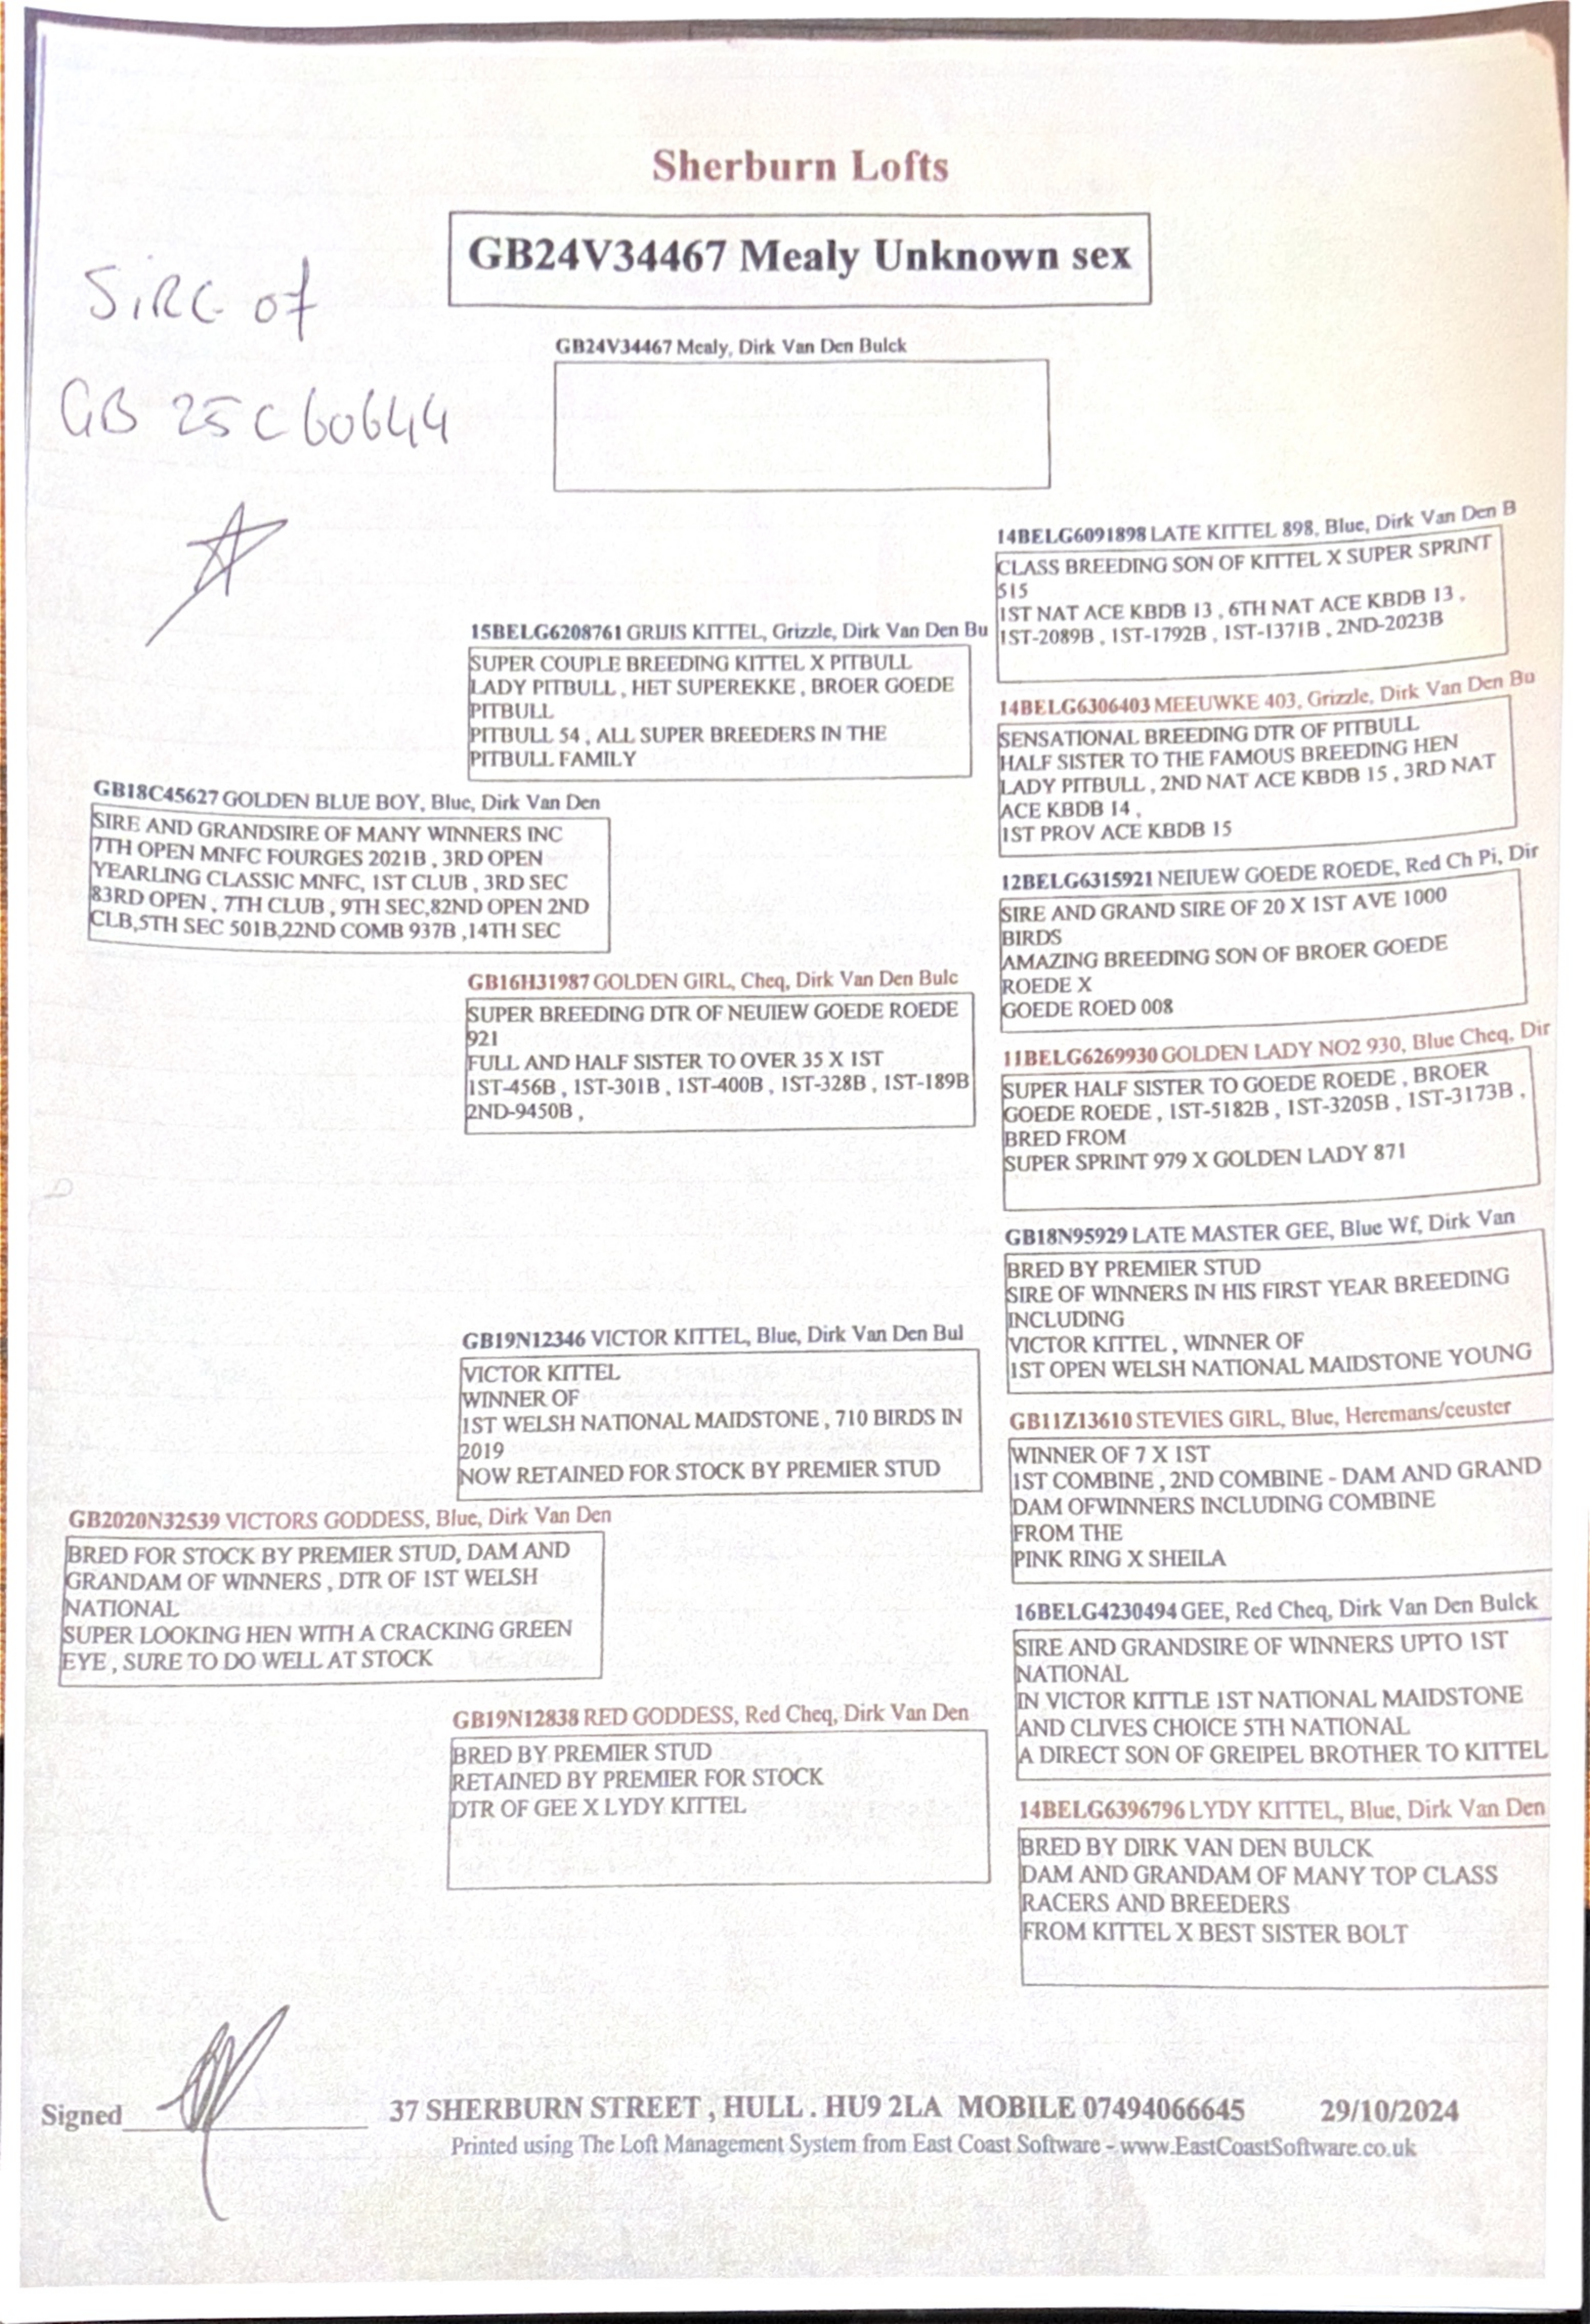 Sherburn Lofts
GB24V34467 Mealy Unknown sex
SIRE of
GB 25C60644
GB24V34467 Mealy, Dirk Van Den Bulck
14BELG6091898 LATE KITTEL 898, Blue, Dirk Van Den B
CLASS BREEDING SON OF KITTEL X SUPER SPRINT
515
1ST NAT ACE KBDB 13 , 6TH NAT ACE KBDB 13 ,
1ST-2089B , 1ST-1792B , 1ST-1371B , 2ND-2023B
15BELG6208761 GRUIS KITTEL, Grizzle, Dirk Van Den Bu
SUPER COUPLE BREEDING KITTEL X PITBULL
LADY PITBULL , HET SUPEREKKE , BROER GOEDE
PITBULL
PITBULL 54 , ALL SUPER BREEDERS IN THE
PITBULL FAMILY
14BELG6306403 MEEUWKE 403, Grizzle, Dirk Van Den Bu
SENSATIONAL BREEDING DTR OF PITBULL
HALF SISTER TO THE FAMOUS BREEDING HEN
LADY PITBULL , 2ND NAT ACE KBDB 15 , 3RD NAT
ACE KBDB 14 ,
1ST PROV ACE KBDB 15
GB18C45627 GOLDEN BLUE BOY, Blue, Dirk Van Den
SIRE AND GRANDSIRE OF MANY WINNERS INC
7TH OPEN MNFC FOURGES 2021B , 3RD OPEN
YEARLING CLASSIC MNFC, 1ST CLUB , 3RD SEC
83RD OPEN , 7TH CLUB , 9TH SEC,82ND OPEN 2ND
CLB,5TH SEC 501B,22ND COMB 937B ,14TH SEC
12BELG6315921 NEIUEW GOEDE ROEDE, Red Ch Pi, Dir
SIRE AND GRAND SIRE OF 20 X 1ST AVE 1000
BIRDS
AMAZING BREEDING SON OF BROER GOEDE
ROEDE X
GOEDE ROED 008
GB16H31987 GOLDEN GIRL, Cheq, Dirk Van Den Bulc
SUPER BREEDING DTR OF NEUIEW GOEDE ROEDE
921
FULL AND HALF SISTER TO OVER 35 X 1ST
1ST-456B , 1ST-301B , 1ST-400B , 1ST-328B , 1ST-189B
2ND-9450B ,
11BELG6269930 GOLDEN LADY NO2 930, Blue Cheq, Dir
SUPER HALF SISTER TO GOEDE ROEDE , BROER
GOEDE ROEDE , 1ST-5182B , 1ST-3205B , 1ST-3173B ,
BRED FROM
SUPER SPRINT 979 X GOLDEN LADY 871
GB18N95929 LATE MASTER GEE, Blue Wf, Dirk Van
BRED BY PREMIER STUD
SIRE OF WINNERS IN HIS FIRST YEAR BREEDING
INCLUDING
VICTOR KITTEL , WINNER OF
1ST OPEN WELSH NATIONAL MAIDSTONE YOUNG
GB19N12346 VICTOR KITTEL, Blue, Dirk Van Den Bul
VICTOR KITTEL
WINNER OF
1ST WELSH NATIONAL MAIDSTONE , 710 BIRDS IN
2019
NOW RETAINED FOR STOCK BY PREMIER STUD
GB11Z13610 STEVIES GIRL, Blue, Heremans/ceuster
WINNER OF 7 X 1ST
1ST COMBINE , 2ND COMBINE - DAM AND GRAND
DAM OFWINNERS INCLUDING COMBINE
FROM THE
PINK RING X SHEILA
GB2020N32539 VICTORS GODDESS, Blue, Dirk Van Den
BRED FOR STOCK BY PREMIER STUD, DAM AND
GRANDAM OF WINNERS , DTR OF 1ST WELSH
NATIONAL
SUPER LOOKING HEN WITH A CRACKING GREEN
EYE , SURE TO DO WELL AT STOCK
16BELG4230494 GEE, Red Cheq, Dirk Van Den Bulck
SIRE AND GRANDSIRE OF WINNERS UPTO 1ST
NATIONAL
IN VICTOR KITTLE 1ST NATIONAL MAIDSTONE
AND CLIVES CHOICE 5TH NATIONAL
A DIRECT SON OF GREIPEL BROTHER TO KITTEL
GB19N12838 RED GODDESS, Red Cheq, Dirk Van Den
BRED BY PREMIER STUD
RETAINED BY PREMIER FOR STOCK
DTR OF GEE X LYDY KITTEL
14BELG6396796 LYDY KITTEL, Blue, Dirk Van Den
BRED BY DIRK VAN DEN BULCK
DAM AND GRANDAM OF MANY TOP CLASS
RACERS AND BREEDERS
FROM KITTEL X BEST SISTER BOLT
Signed
37 SHERBURN STREET , HULL . HU9 2LA MOBILE 07494066645 29/10/2024
Printed using The Loft Management System from East Coast Software - www.EastCoastSoftware.co.uk